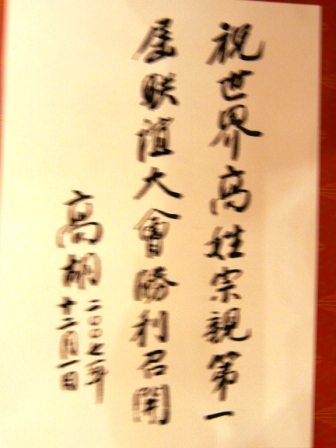 祝世界高姓宗親第一
届联誼大會勝利召開
高胡
二〇〇七年
十二月一日